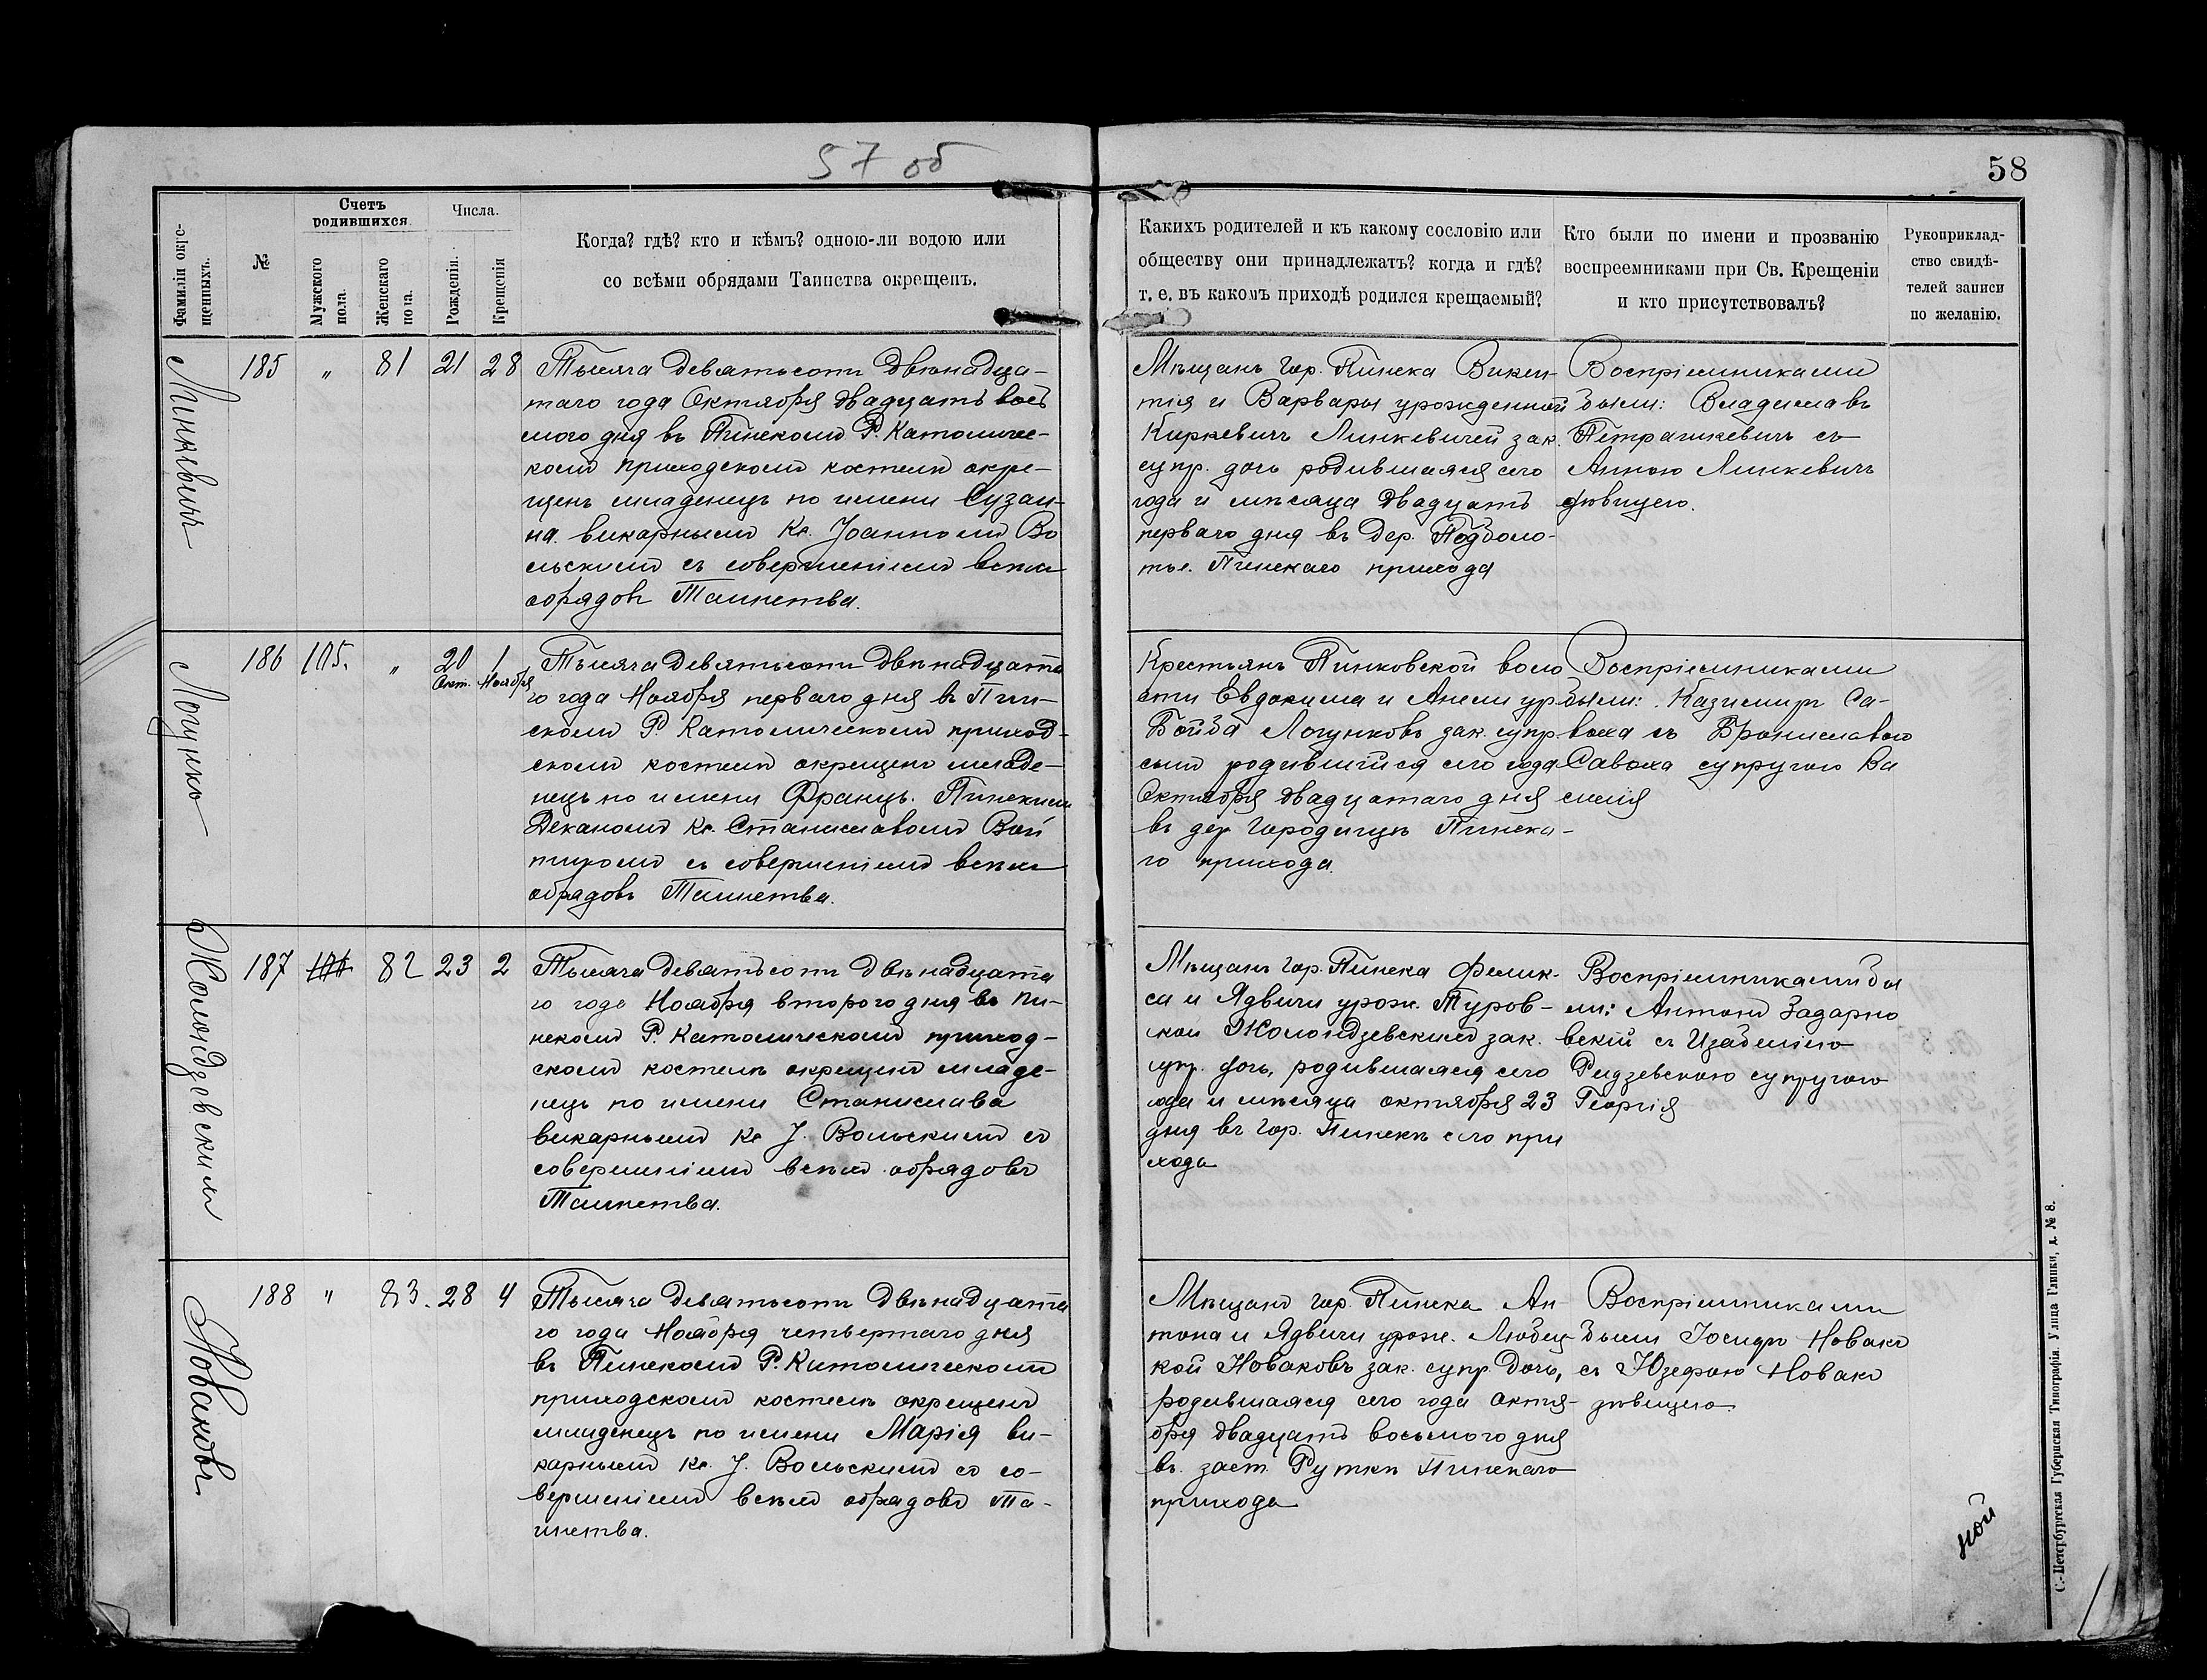 57 об
58
Фамиліи окре-
щенныхъ.
№
Счетъ
родившихся.
Мужского
пола.
Женскаго
пола.
Числа.
Рожденія.
Крещенія
Когда? гдѣ? кто и кѣмъ? одною-ли водою или
со всѣми обрядами Таинства окрещенъ.
Какихъ родителей и къ какому сословію или
обществу они принадлежатъ? когда и гдѣ?
т. е. въ какомъ приходѣ родился крещаемый?
Кто были по имени и прозванію
воспреемниками при Св. Крещеніи
и кто присутствовалъ?
Рукоприклад-
ство свидѣ-
телей записи
по желанію.
Линкевичъ
185 „ 81 21 28
Тысяча девятьсотъ двѣнадца-
таго года Октября двадцать вось
мого дня въ Пинскомъ Р. Католиче-
комъ приходскомъ костелѣ окре-
щенъ младенецъ по имени Сузан-
на викарнымъ Кс. Іоанномъ Во
льскимъ съ совершеніемъ всѣхъ
обрядовъ Таинства.
Мѣщанъ гор. Пинска Викен-
тія и Варвары урожденной
Киркевичъ Линкевичей зак.
супр. дочь родившаяся сего
года и мѣсяца двадцать
перваго дня въ дер. Подболо-
тье. Пинскаго прихода
Воспріемниками
были: Владиславъ
Петрашкевичъ съ
Анною Линкевичъ
дѣвицею.
Логунко
186 105. „ 20 Окт. 1 Ноября
Тысяча девятьсотъ двѣнадцата
го года Ноября перваго дня въ Пин-
скомъ Р Католическомъ приход-
скомъ костелѣ окрещенъ младе-
нецъ по имени Францъ. Пинскимъ
Деканомъ Кс. Станиславомъ Вой
тихомъ съ совершеніемъ всѣхъ
обрядовъ Таинства.
Крестьянъ Пинковской воло
сти Евдокима и Анели ур
Бойба Логунковъ зак. супр
сынъ родившійся сего года
Октября двадцатаго дня
въ дер Городищѣ Пинска-
го прихода.
Воспріемниками
были: Казимиръ Са-
воха съ Брониславою
Савоха супругою Ва
силія
Жолондзевскимъ
187 82 23 2
Тысяча девятьсотъ двѣнадцата
го года Ноября второго дня въ Пи-
нскомъ Р. Католическомъ приход-
скомъ костелѣ окрещенъ младе-
нецъ по имени Станислава
викарнымъ Кс І. Вольскимъ со
совершеніемъ всѣхъ обрядовъ
Таинства.
Мѣщанъ гор. Пинска Фелик-
са и Ядвиги урож. Туров-
ской Жолондзевскихъ зак.
супр. дочь, родившаяся сего
года и мѣсяца октября 23
дня въ гор. Пинскѣ сего при
хода
Воспріемниками бы
ли: Антонъ Задарно
вскій съ Изабеллею
Ридзевскою супругою
Георгія
Новаковъ
188 „ 83. 28 4
Тысяча девятьсотъ двѣнадцата
го года Ноября четвертаго дня
въ Пинскомъ Р. Католическомъ
приходскомъ костелѣ окрещенъ
младенецъ по имени Марія ви-
карнымъ Кс. І. Вольскимъ со со-
вершеніемъ всѣхъ обрядовъ Та-
инства.
Мѣщанъ гор. Пинска Ан
тона и Ядвиги урож. Любец
кой Новаковъ зак. супр. дочь,
родившаяся сего года октя-
бря двадцать восьмого дня
въ заст. Руткѣ Пинскаго
прихода
Воспріемниками
были Іосифъ Новакъ
съ Юзефою Новакъ
дѣвицею.
ной
С.-Петербургская Губернская Типографія. Улица Глинки, д. № 8.